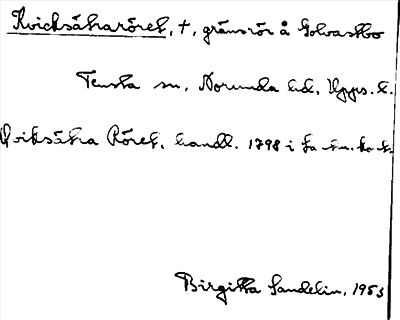 Kvicksätraröret, †, gränsrör å Golvastbo
Tensta sn, Norunda hd, Upps. l.
Qviksätra Röret, handl. 1798 i La
Birgitta Sandelin, 1953